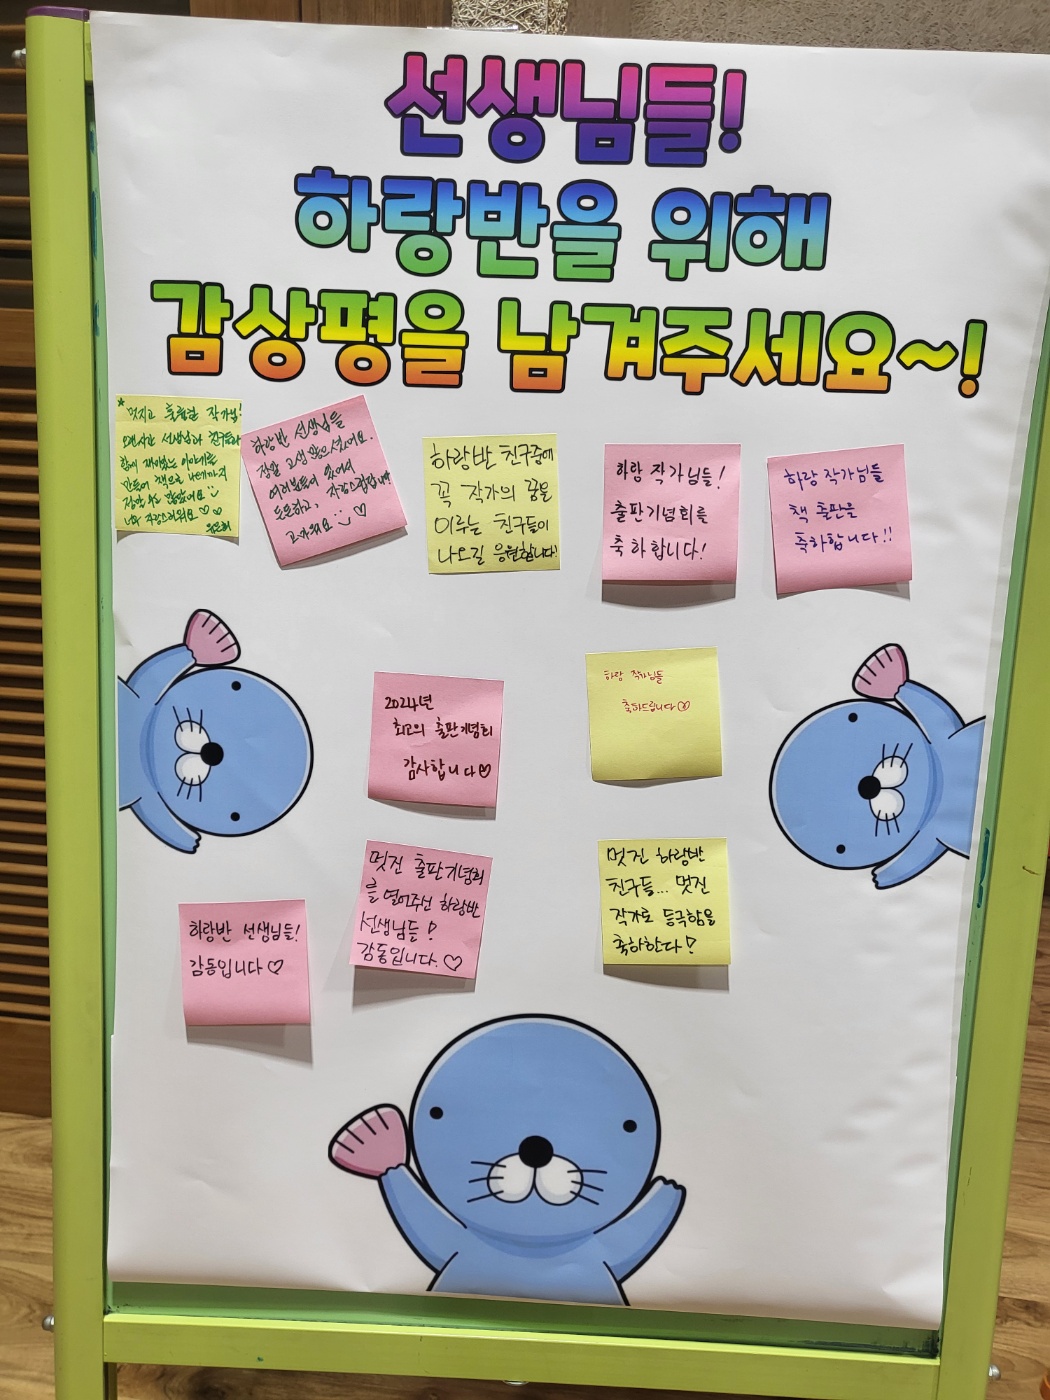 선생님들!
하랑반을 위해
감상평을 남겨주세요~!
멋지고 훌륭한 작가님!
오랜시간 선생님과 친구들과
함께 재미있는 이야기를
만들어 책으로 내기까지
정말 수고 많았어요
너무 자랑스러워요♡♡
하랑반 선생님들
정말 고생 많으셨어요.
여러분들이 있어서
든든하고, 자랑스럽답니다
고마워요 ♡
하랑반 친구중에
꼭 작가의 꿈을
이루는 친구들이
나오길 응원합니다!
하랑 작가님들!
출판기념회를
축하합니다!
하랑 작가님들
책 출판을
축하합니다!!
2024년
최고의 출판기념회
감사합니다♡
하랑 작가님들
축하드립니다♡
멋진 출판기념회
를 열어주신 하랑반
선생님들!
감동입니다.♡
멋진 하랑반
친구들... 멋진
작가로 등극함을
축하한다!
하랑반 선생님들!
감동입니다♡